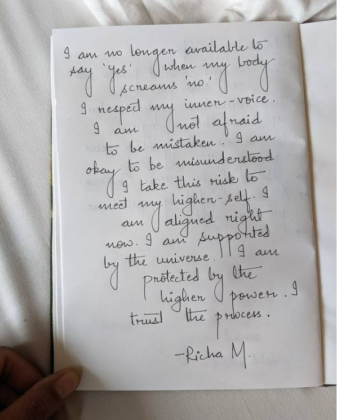 I am no longer available to
say 'yes' when my body
screams 'no'
I respect my inner-voice.
I am not afraid
to be mistaken. I am
okay to be misunderstood
I take this risk to
meet my higher-self. I
am aligned right
now. I am supported
by the universe. I am
protected by the
higher power. I
trust the process.
-Richa M.